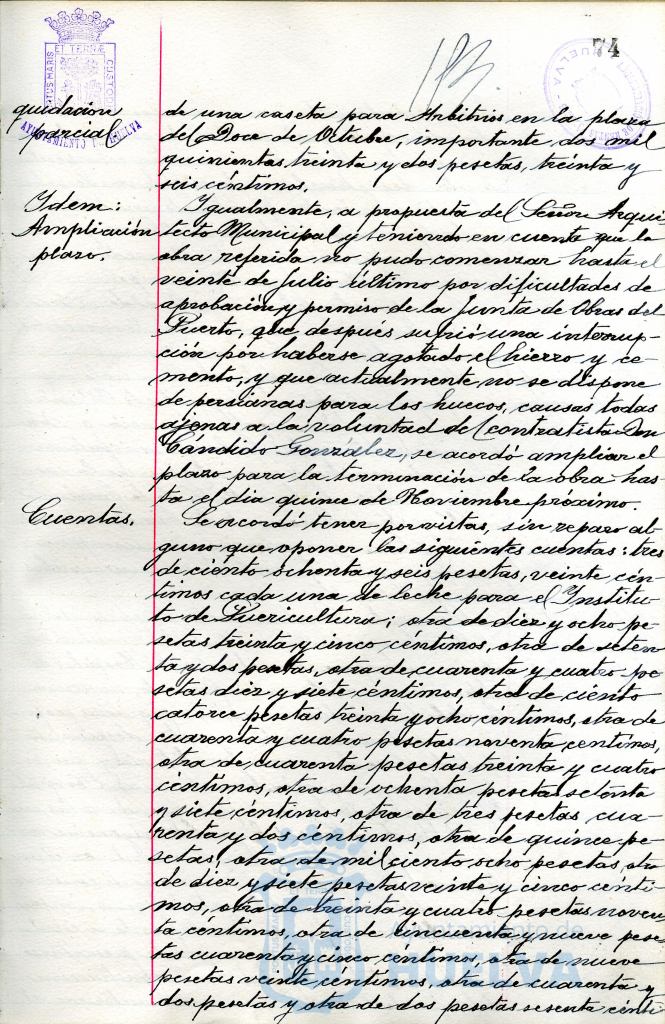 74
quidación
parcial
de una caseta para Arbitrios en la plaza
del Doce de Octubre, importante dos mil
quinientas treinta y dos pesetas, treinta y
seis céntimos.
Idem:
Ampliación
plazo.
Igualmente, a propuesta del Señor Arqui-
tecto Municipal y teniendo en cuenta que la
obra referida no pudo comenzar hasta el
veinte de Julio último por dificultades de
aprobación y permiso de la Junta de Obras del
Puerto, que después sufrió una interrup-
ción por haberse agotado el hierro y ce-
mento, y que actualmente no se dispone
de persianas para los huecos, causas todas
ajenas a la voluntad del contratista Don
Cándido González, se acordó ampliar el
plazo para la terminación de la obra has-
ta el día quince de Noviembre próximo.
Cuentas.
Se acordó tener por vistas, sin reparo al-
guno que oponer las siguientes cuentas: tres
de ciento ochenta y seis pesetas, veinte cén-
timos cada una de leche para el Institu-
to de Puericultura; otra de diez y ocho pe-
setas treinta y cinco céntimos, otra de seten-
ta y dos pesetas, otra de cuarenta y cuatro pe-
setas diez y siete céntimos, otra de ciento
catorce pesetas treinta y ocho céntimos, otra de
cuarenta y cuatro pesetas noventa centimos,
otra de cuarenta pesetas treinta y cuatro
céntimos, otra de ochenta pesetas setenta
y siete céntimos, otra de tres pesetas, cua-
renta y dos céntimos, otra de quince pe-
setas, otra de mil ciento ocho pesetas, otra
de diez y siete pesetas veinte y cinco cénti-
mos, otra de treinta y cuatro pesetas noven-
ta céntimos, otra de cincuenta y nueve pese-
tas cuarenta y cinco céntimos, otra de nueve
pesetas veinte céntimos, otra de cuarenta y
dos pesetas y otra de dos pesetas sesenta cénti-
Ayuntamiento de
HUELVA